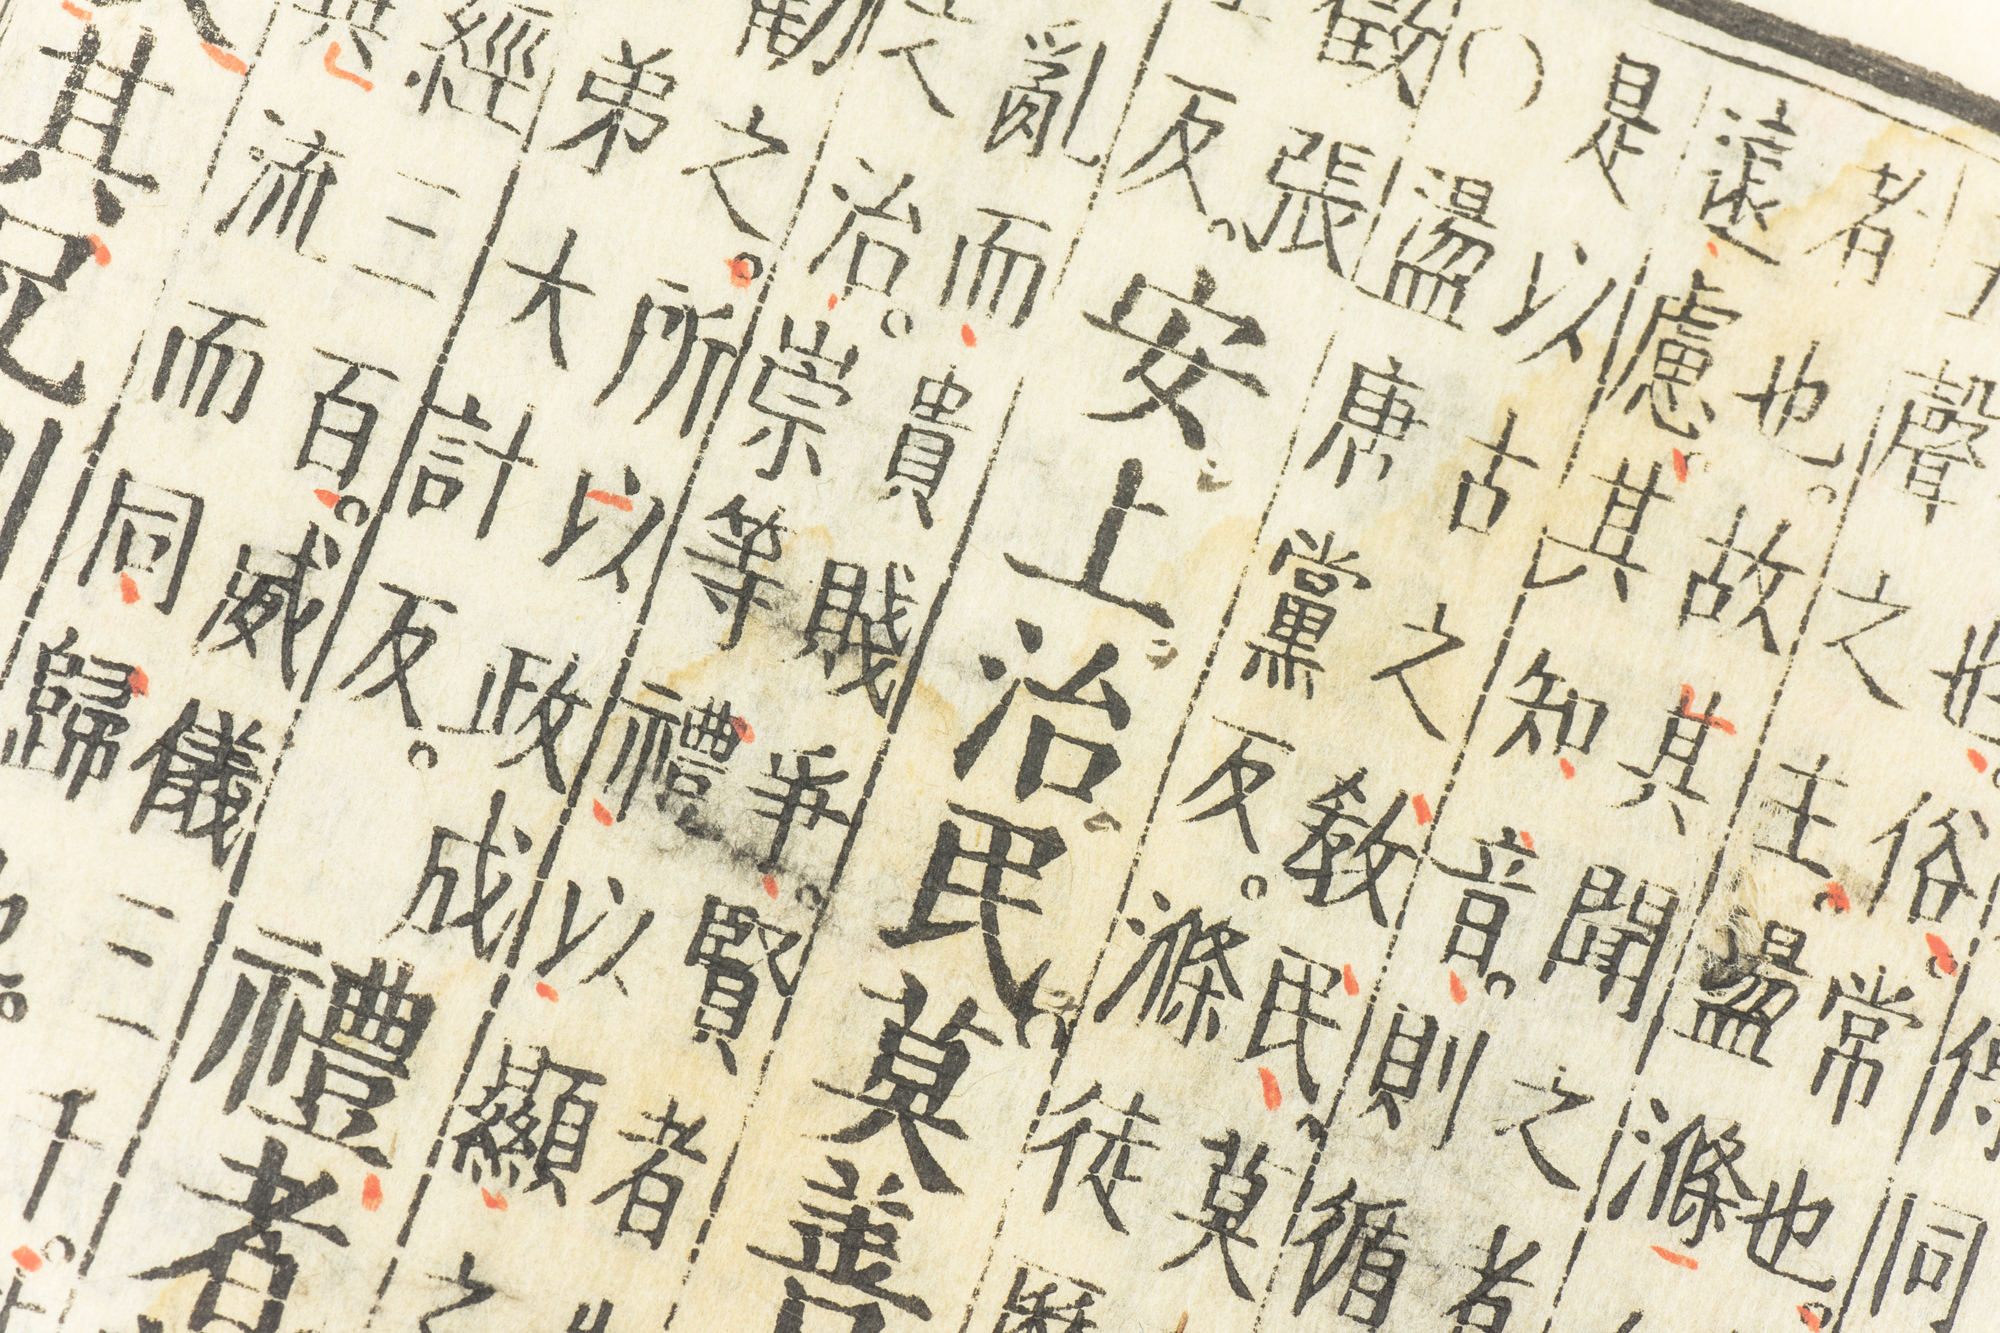 同
也。俗。常也。
聲之主。盪滌
者也。故其聞之者
遠慮。其知音。則循
是以古之敎民。莫
○盪唐黨反。滌徒歷
張
反。
安上治民莫善
亂而貴賤爭。賢者
之治。崇等禮以顯之
勸之。所以政成
弟大計反。
禮者
經三百。威儀三千。
典流而同歸也。
其兄則